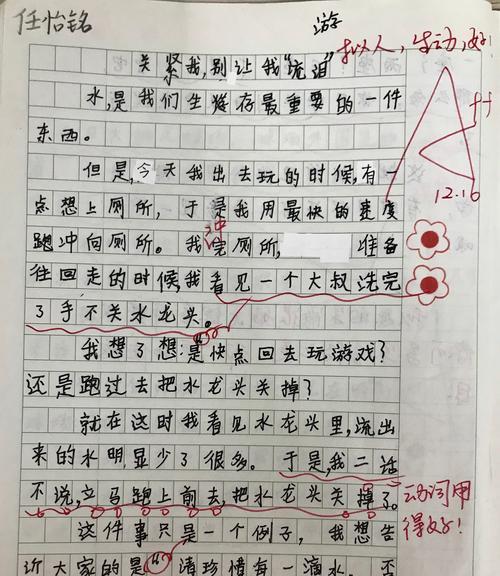 任怡铭
游
拟人,生动,好!
关紧我,别让我“流泪”
水,是我们生存最重要的一件
东西。
12.16
但是,今天我出去玩的时候,有一
点想上厕所,于是我用最快的速度
跑冲向厕所。我冲完厕所, 准备
往回走的时候,我看见一个大叔洗完
了手不关水龙头。
我想了想:是快点回去玩游戏?
还是跑过去把水龙头关掉?
就在这时我看见水龙头里,流出
来的水明显少了很多。于是,我二话
不说,立马跑上前去,把水龙头关掉了。
动词用
得好!
这件事只是一个例子,我想告
诉大家的是“请珍惜每一滴水。否